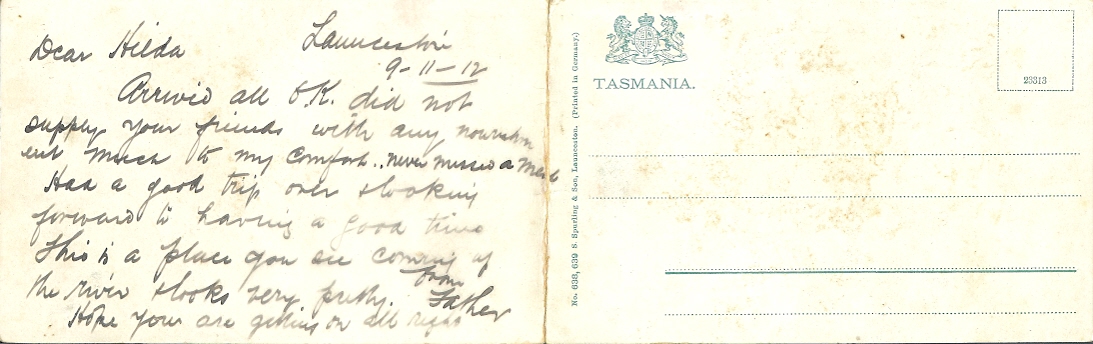 Launceston
Dear Hilda
9-11-12
Arrived all O.K. did not
supply your friends with any nourishm
ent much to my comfort.. never missed a meal
Had a good trip over & looking
forward to having a good time
This is a place you see coming up
the river & looks very pretty.
from
Father
Hope your are getting on all right
No. 638, 639 S. Spurling & Son, Launceston. (Printed in Germany.)
TASMANIA.
23313